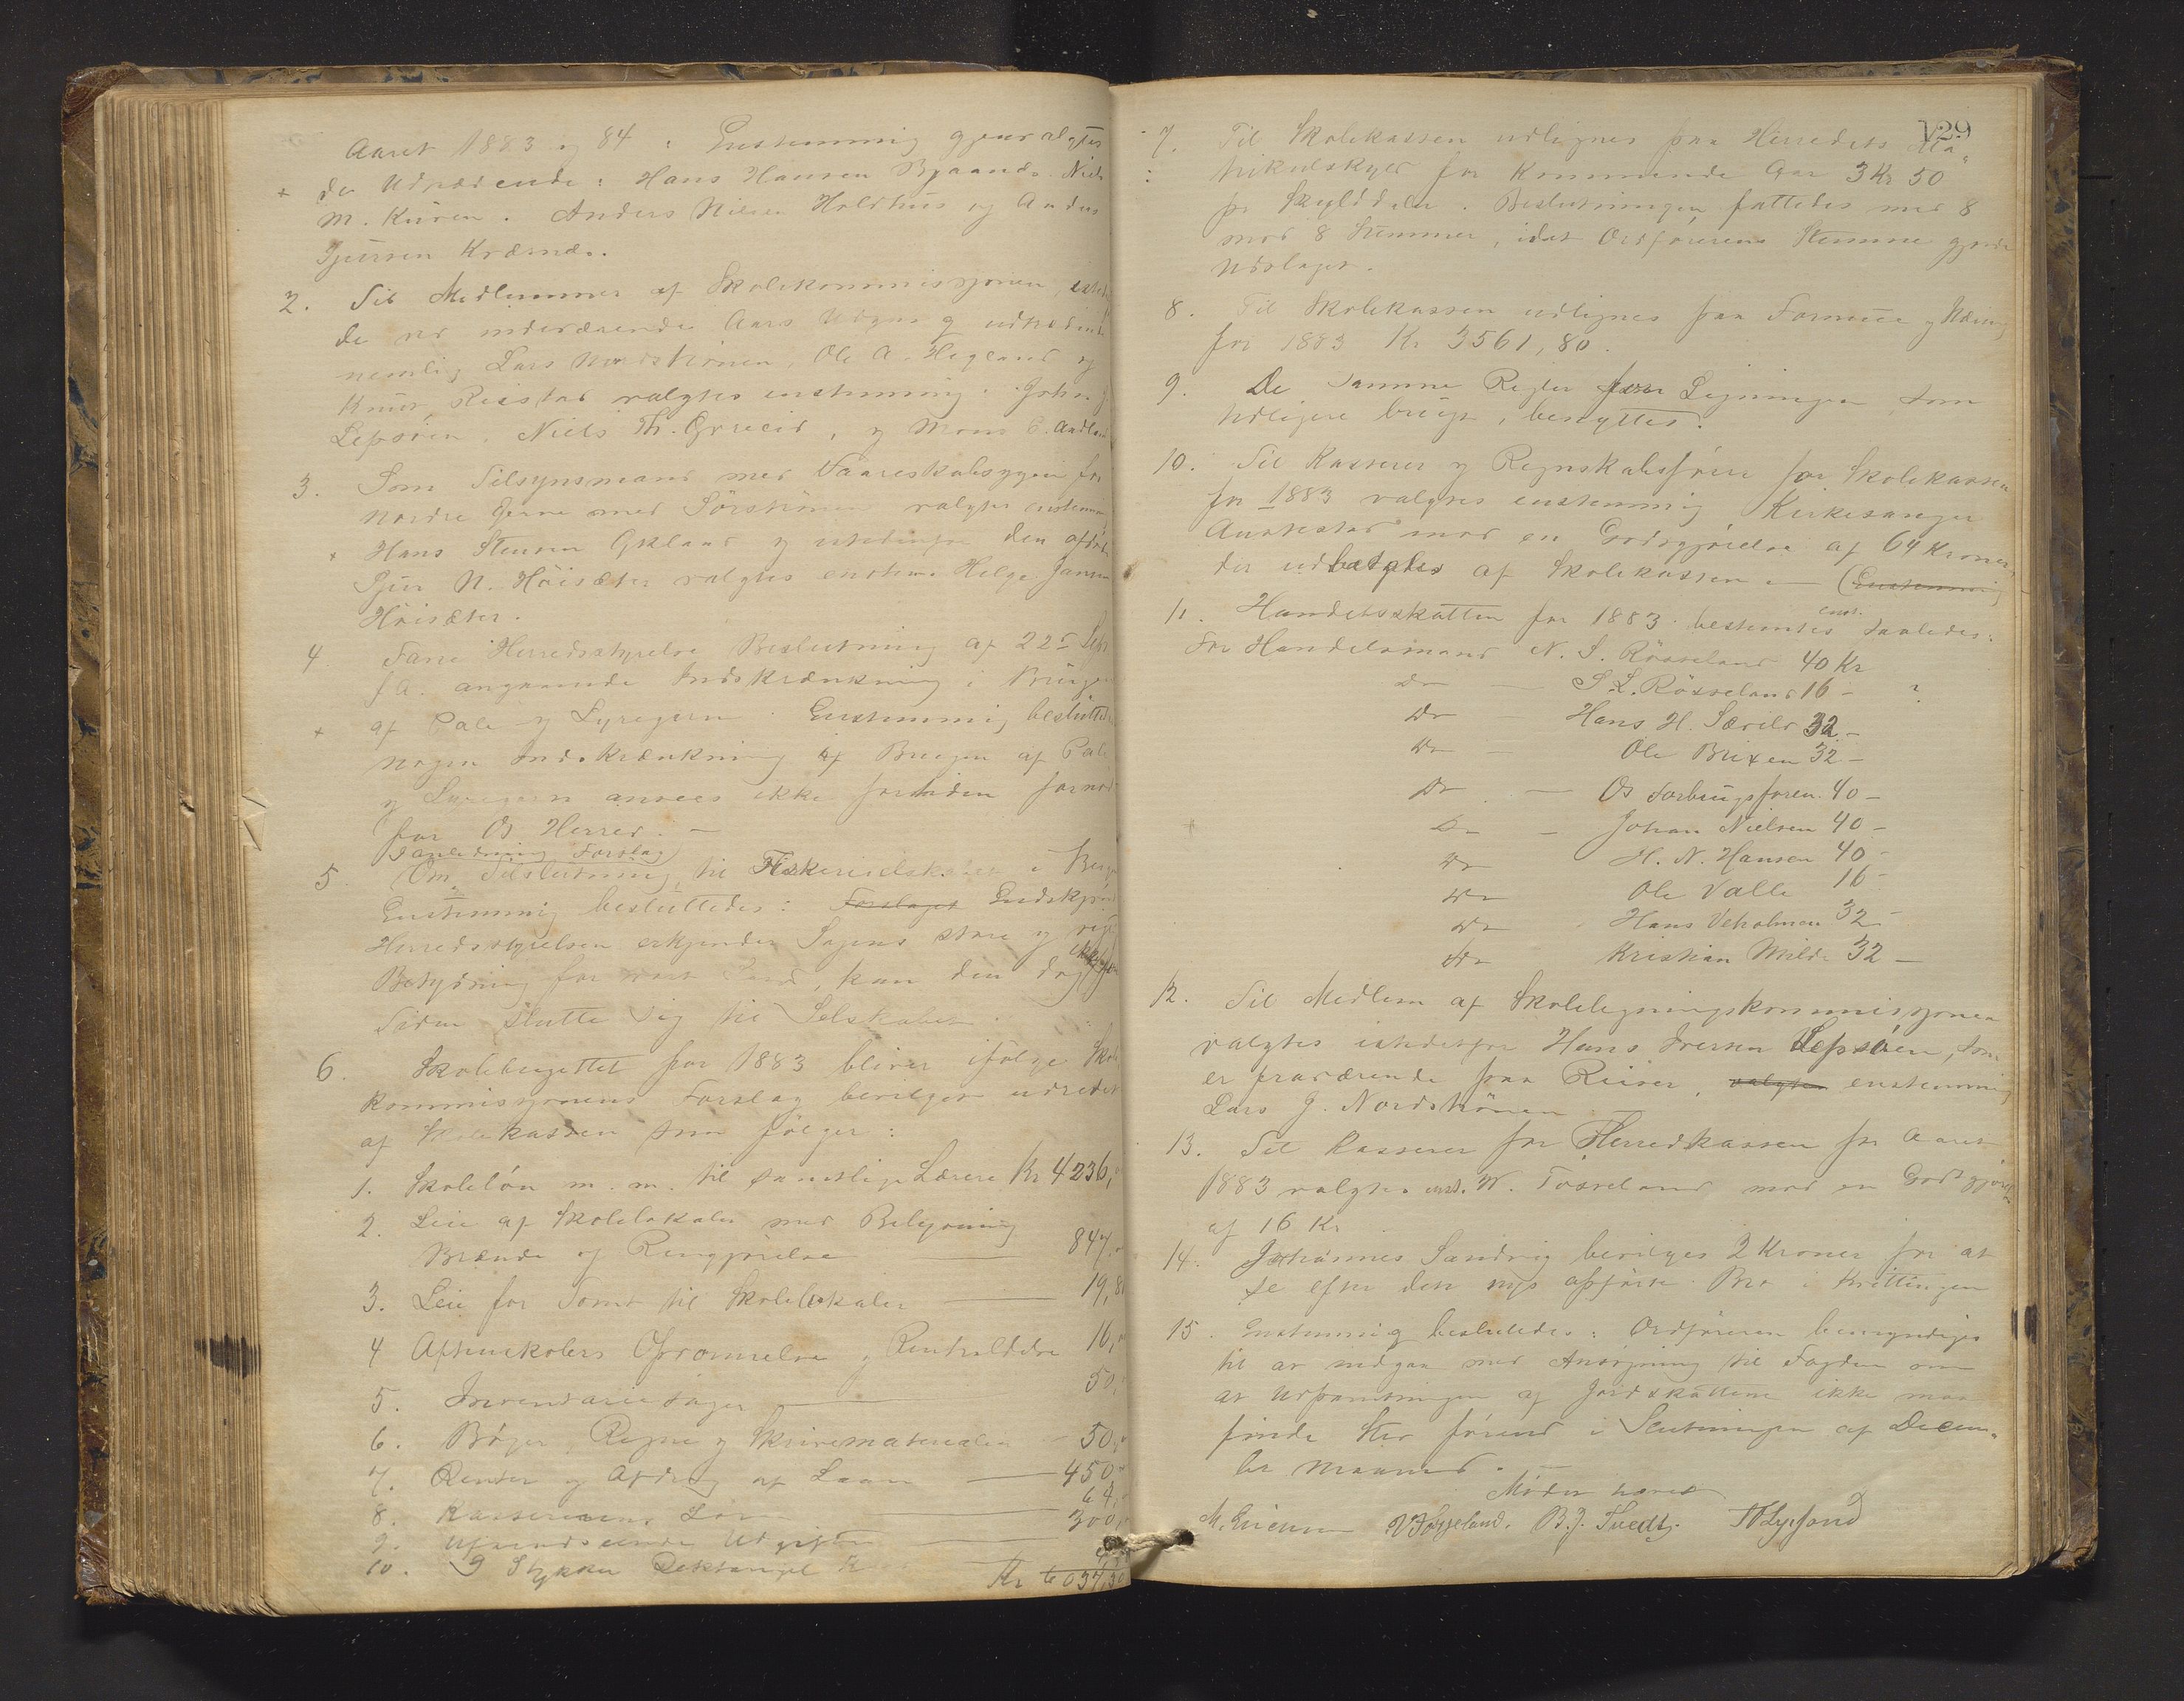 Aaret 1883 og 84: Enstemmig gjenvalgtes
de Udtrædende: Hans Hansen Bjaanæs. Niels
M. Kuven. Anders Nilsen Holdhus og Anders
Gjursen Kræmes.
2. Til Medlemmer af Skolekommissjonen, istedf
de ved indeværende Aars Udgang udtrædende
nemlig Lars Nordstrønen, Ole A. Hegland og
Knut Reistad valgtes enstemmig. John J.
Lepsøen, Niels Th. Grreid, og Mons E. Aadland
3. Som Tilsynsmand med Faareskabsygen for
nordre Fjerne med Sørstrønen valgtes enstemmig
Hans Steensen Økland og istedenfor den afdøde
Gjur N. Høisæter valgtes enstem. Helge Jansen
Høisæter.
4. Fane Herredsstyrelse Beslutning af 22de Sept
f.A. angaaende Indskrænkning i Brugen
af Pale og Lyregarn. Enstemmig besluttedes
nogen Indskrænkning af Brugen af Pale
og Lyregarn ansees ikke fortiden fornøden
for Os Herred. —
5. Om Tilslutning i anledning Forslag til Fiskeriselskabet i Bergen
Enstemmig besluttedes: Forslaget Endskjønt
Herredsstyrelsen erkjender Sagens store og vigt
Betydning for vort Land, kan den dog ikke for
Tiden slutte sig til Selskabet.
6. Skolebugettet for 1883 bliver ifølge Skole
kommissjonens Forslag bevilget udredet
af Skolekassen som følger:
1. Skoleløn m.m. til samtlige Lærere Kr 4236,
2. Leie af Skolelokaler med Belysning
Brænde og Rengjørelse — 847,
3. Leie for Tomt til Skolelokaler — 19,80
4 Aftenskolers Oprømelse og Renholdelse 16,
5. Inventariesager — 50,
6. Bøger, Regne og Skrivematerialer — 50,
7. Renter og Afdrag af Laan — 450
8. Kassererens Løn — 64,
9. Uforudseende Udgifter — 300,
10. 9 Stykker
Kr 6037,30
129
7. Til Skolekassen udlignes paa Herredets Ma-
trikulskyld for Kommende Aar 3 Kr 50
pr Skylddaler. Beslutningen fattedes med 8
mod 8 Stemmer, idet Ordførerens Stemme gjorde
Udslaget.
8. Til Skolekassen udlignes paa Formue og Næring
for 1883 Kr 3561,80.
9. De samme Regler for Ligningen som
tidligere brugt, benyttes.
10. Til Kasserer og Regnskabsfører for Skolekassen
for 1883 valgtes enstemmig Kirkesanger
Austestad mod en Godtgjørelse af 64 Kroner,
der udbetales af Skolekassen — (Enstemmig
11. Handelsskatten for 1883 bestemtes enst. saaledes:
For Handelsmand N. S. Røsseland 40 Kr
Do — S. L. Røsseland 16 — ?
Do — Hans H. Særvold 32 —
Do — Ole Brixen 32 —
Do — Os Forbrugsforen. 40 —
Do — Johan Nielsen 40 —
Do H. N. Hansen 40 —
Do Ole Valle 16 —
Do Hans Vetholmen 32 —
Do Kristian Milde 32 —
12. Til Medlem af Skoleligningskommissjonen
valgtes istedetfor Hans Iversen Lepsøen, som
er fraværende paa Reiser, valgtes enstemmig
Lars J. Nordstrønen
13. Til Kasserer for Herredskassen for Aaret
1883 valgtes enst. N. Tøsseland mod en Godtgjørelse
af 16 Kr.
14. Johannes Sandvig bevilges 2 Kroner for at
se efter den nys opførte Bro i Kvittingen
15. Enstemmig besluttedes: Ordføreren bemyndiges
til at indgaa med Ansøgning til Fogden om
at Udpantningen af Jordskatterne ikke maa
finde Sted førend i Slutningen af Decem-
ber Maaned. —
Mødet hævet
M. Ericksen V. Fosseland. B. J. Tvedt. N Lysland